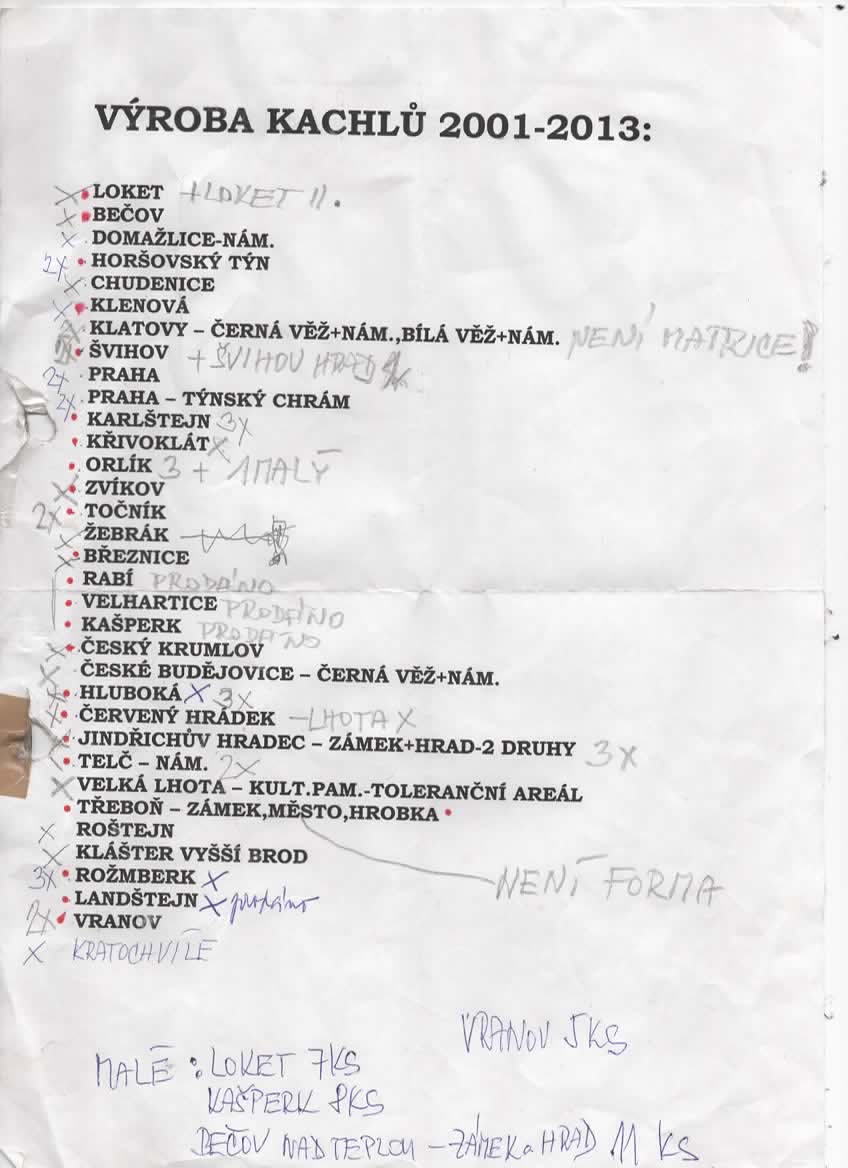 VÝROBA KACHLŮ 2001-2013:
X • LOKET + LOKET II.
X • BEČOV
X DOMAŽLICE-NÁM.
2X • HORŠOVSKÝ TÝN
X CHUDENICE
X • KLENOVÁ
X KLATOVY – ČERNÁ VĚŽ+NÁM.,BÍLÁ VĚŽ+NÁM. NENÍ MATRICE!
• ŠVIHOV + ŠVIHOV HRAD
2X PRAHA
2X PRAHA – TÝNSKÝ CHRÁM
• KARLŠTEJN 3X
• KŘIVOKLÁT X
• ORLÍK 3 + 1 MALÝ
X • ZVÍKOV
2X • TOČNÍK
X ŽEBRÁK
X • BŘEZNICE
• RABÍ PRODÁNO
• VELHARTICE PRODÁNO
• KAŠPERK PRODÁNO
X • ČESKÝ KRUMLOV
X ČESKÉ BUDĚJOVICE – ČERNÁ VĚŽ+NÁM.
X • HLUBOKÁ X 3X
X • ČERVENÝ HRÁDEK – LHOTA X
X • JINDŘICHŮV HRADEC – ZÁMEK+HRAD-2 DRUHY 3X
• TELČ – NÁM. 2X
X VELKÁ LHOTA – KULT.PAM.-TOLERANČNÍ AREÁL
• TŘEBOŇ – ZÁMEK,MĚSTO,HROBKA •
X ROŠTEJN
X KLÁŠTER VYŠŠÍ BROD
3X • ROŽMBERK X
NENÍ FORMA
• LANDŠTEJN X prodáno
2X • VRANOV
X KRATOCHVÍLE
VRANOV 5KS
MALÉ : LOKET 7KS
KAŠPERK 8KS
BEČOV NAD TEPLOU – ZÁMEK a HRAD 11 KS